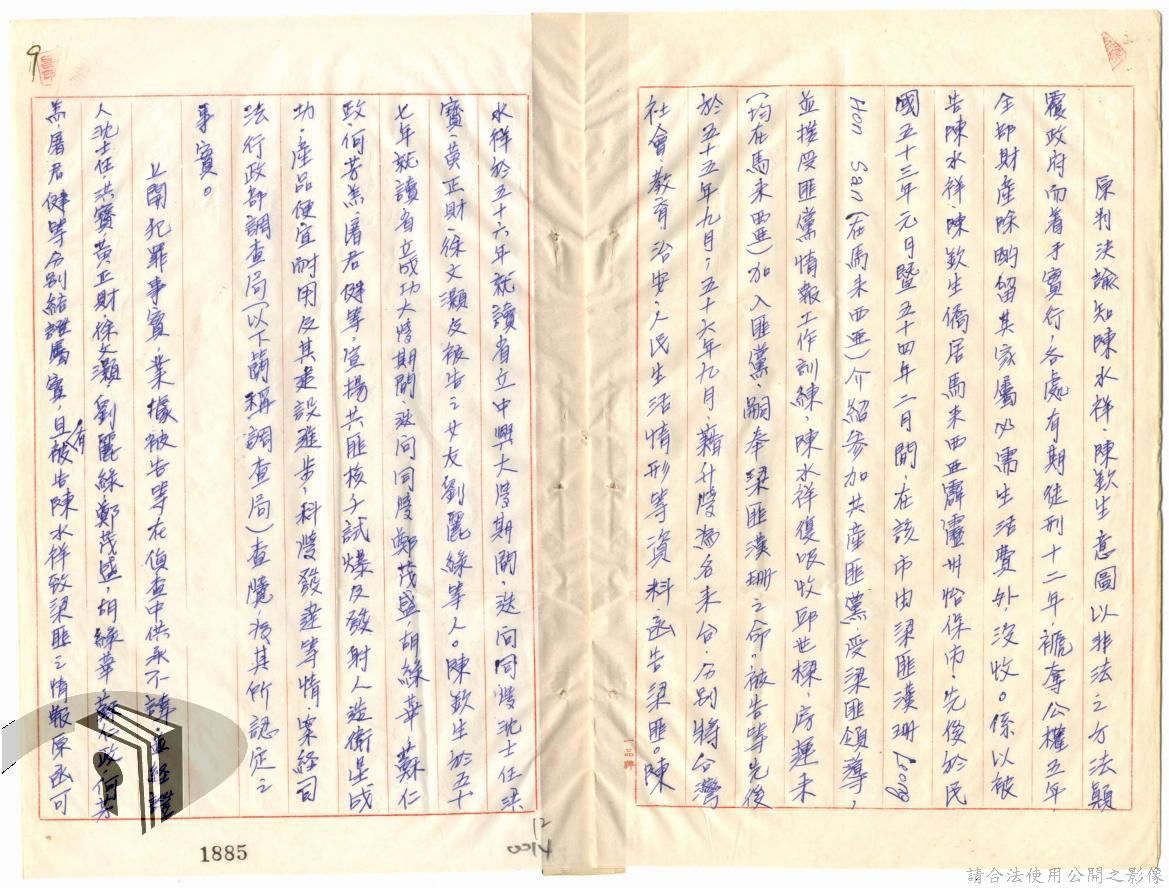 原判決諭知陳水祥、陳欽生意圖以非法之方法顛
覆政府而着手實行，各處有期徒刑十二年，褫奪公權五年，
全部財產除酌留其家屬必需生活費外沒收。係以被
告陳水祥陳欽生僑居馬來西亞霹靂州怡保市，先後於民
國五十三年元月暨五十四年二月間，在該市由梁匪漢珊Leong
Hon San（在馬來西亞）介紹參加共產匪黨，受梁匪領導，
並接受匪黨情報工作訓練，陳水祥復吸收邱世樑、房蓮來
（均在馬來西亞）加入匪黨，嗣奉梁匪漢珊之命，被告等先後
於五十五年九月，五十六年九月，藉升學為名來台，分別將台灣
社會、教育、治安、人民生活情形等資料函告梁匪。陳
水祥於五十六年就讀省立中興大學期間，迭向同學沈士任、洪
寶、黃正財、徐文灝及被告之女友劉麗綠等人。陳欽生於五十
七年就讀省立成功大學期間，迭向同學鄭茂盛、胡綠華、蘇仁
政、何芳焘、屠君健等，宣揚共匪核子試爆及發射人造衛星成
功，產品便宜耐用及其建設進步，科學發達等情，案經司
法行政部調查局（以下簡稱調查局）查覺，為其所認定之
事實。
上開犯罪事實，業據被告等在偵查中供承不諱，並經證
人沈士任洪寶黃正財徐文灝劉麗綠鄭茂盛、胡綠華、蘇仁政、何芳
焘、屠君健等分別結證屬實，且有被告陳水祥致梁匪之情報原函可
9
1885
12
0014
一品牌
請合法使用公開之影像